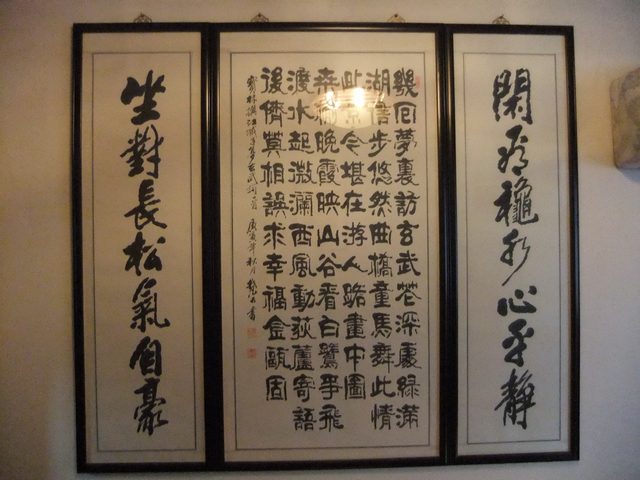 閑看穐水心平靜
幾回夢裏訪玄武花深處綠滿
湖信步悠然曲橋童馬舞此情
此景今堪在游人路畫中圖
桑榆晚霞映山谷看白鷺爭飛
渡水起微瀾西風動荻蘆寄語
後儕莫相誤求幸福金甌固
寶林撰江城子 庚寅年秋月 書
坐對長松氣自豪